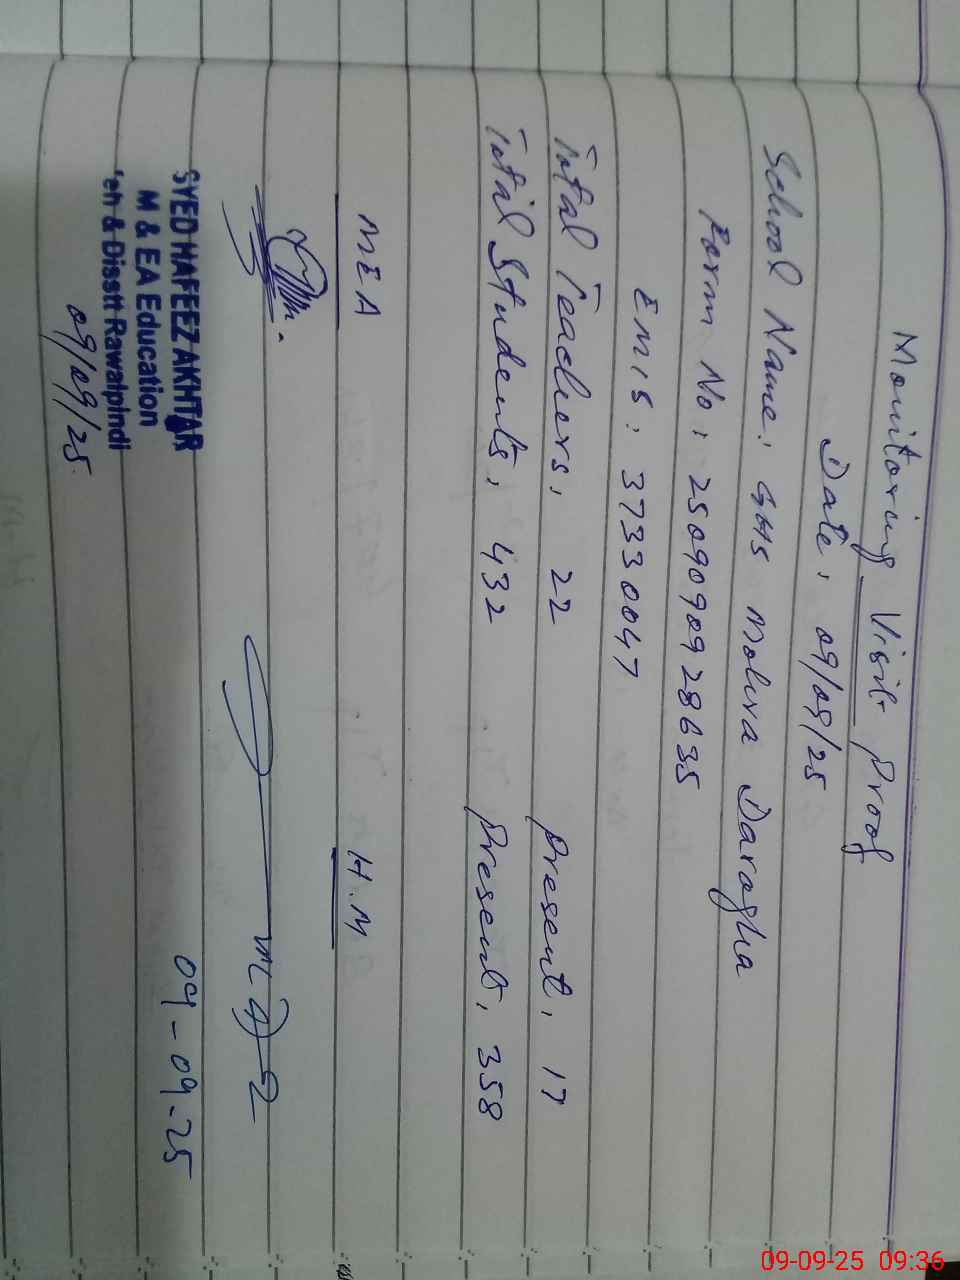 Monitoring Visit Proof
Date: 09/09/25
School Name: GHS Mohra Darogha
Form No: 2509090928635
EMIS: 37330047
Total Teachers: 22 Present: 17
Total Students: 432 Present: 358
MEA H.M
SYED HAFEEZ AKHTAR
M & EA Education
eh & Disstt Rawalpindi
09/09/25
09-09-25
09-09-25 09:36